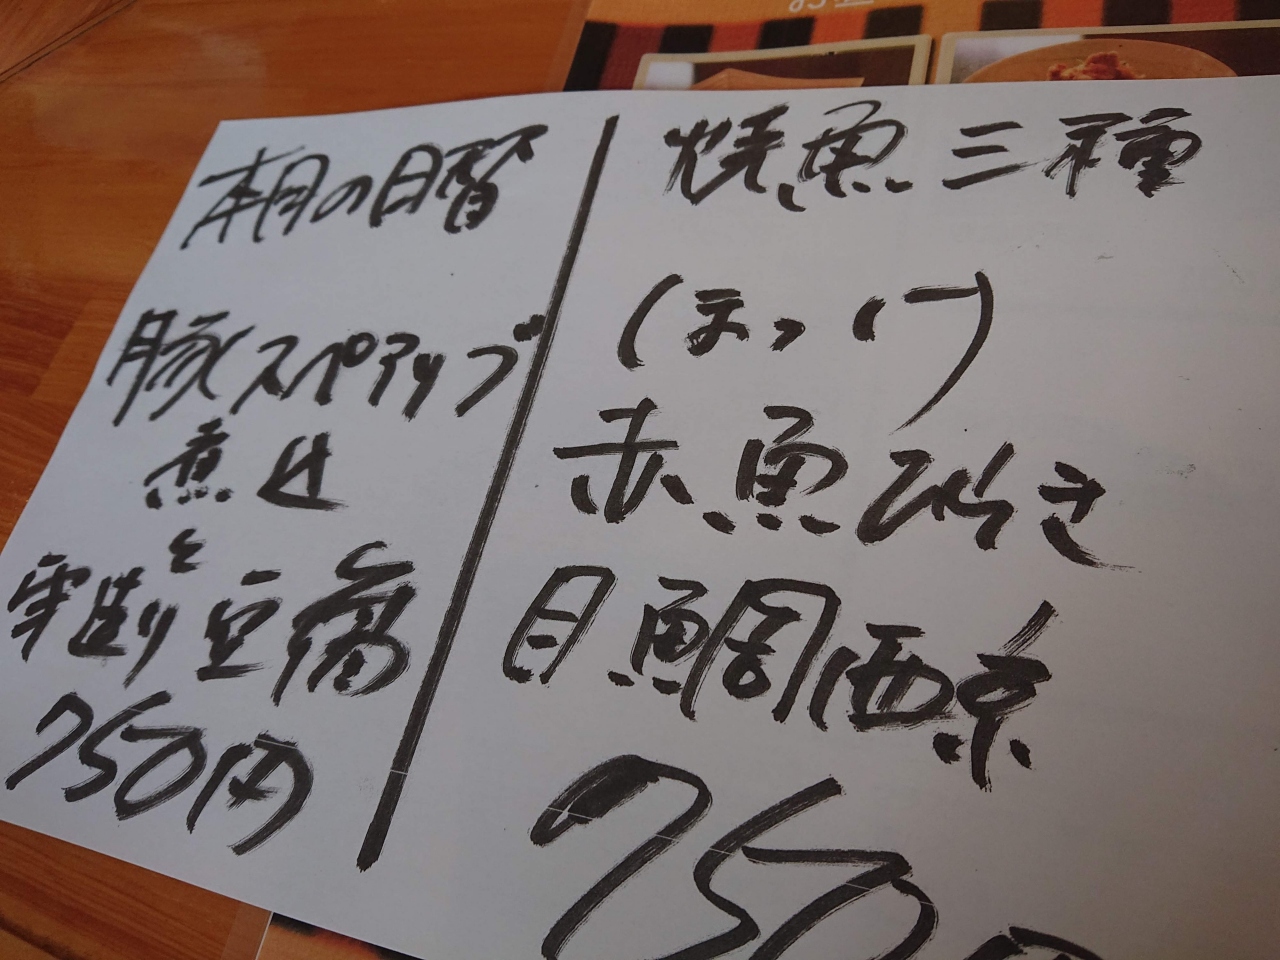 本日の日替
豚スペアリブ
煮込
と
厚揚豆腐
750円
焼魚三種
(ほっけ)
赤魚ひらき
目鯛西京
750円